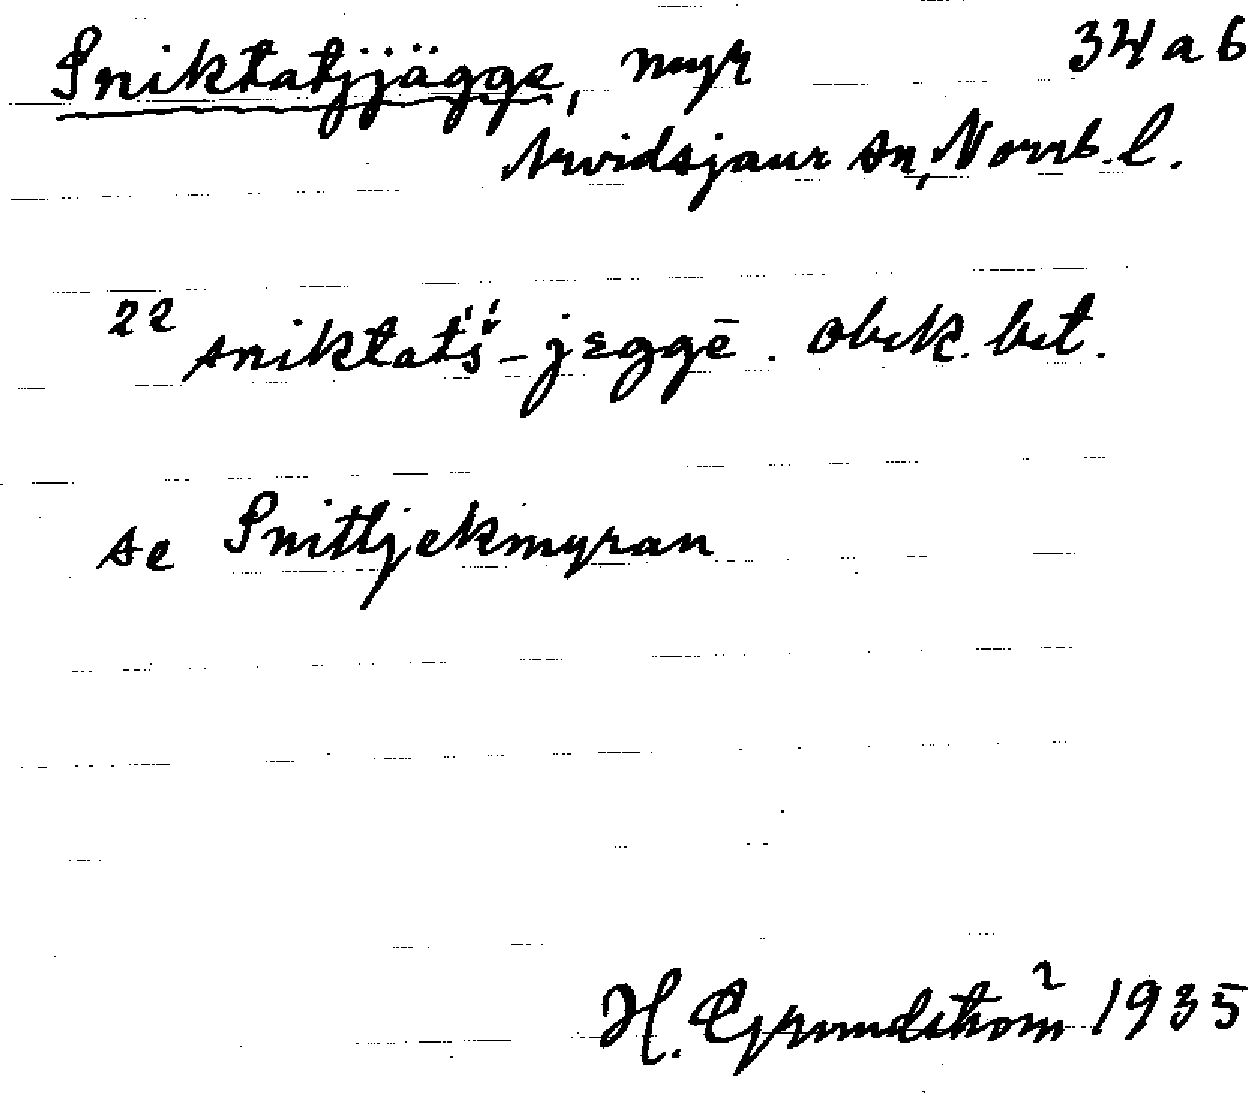 Sniktatjjägge, myr 34 a 6
Arvidsjaur sn, Norrb. l.
22 sniktatš́š́-jɛggē. obek. bet.
se Snittjekmyran
H. Grundström 1935